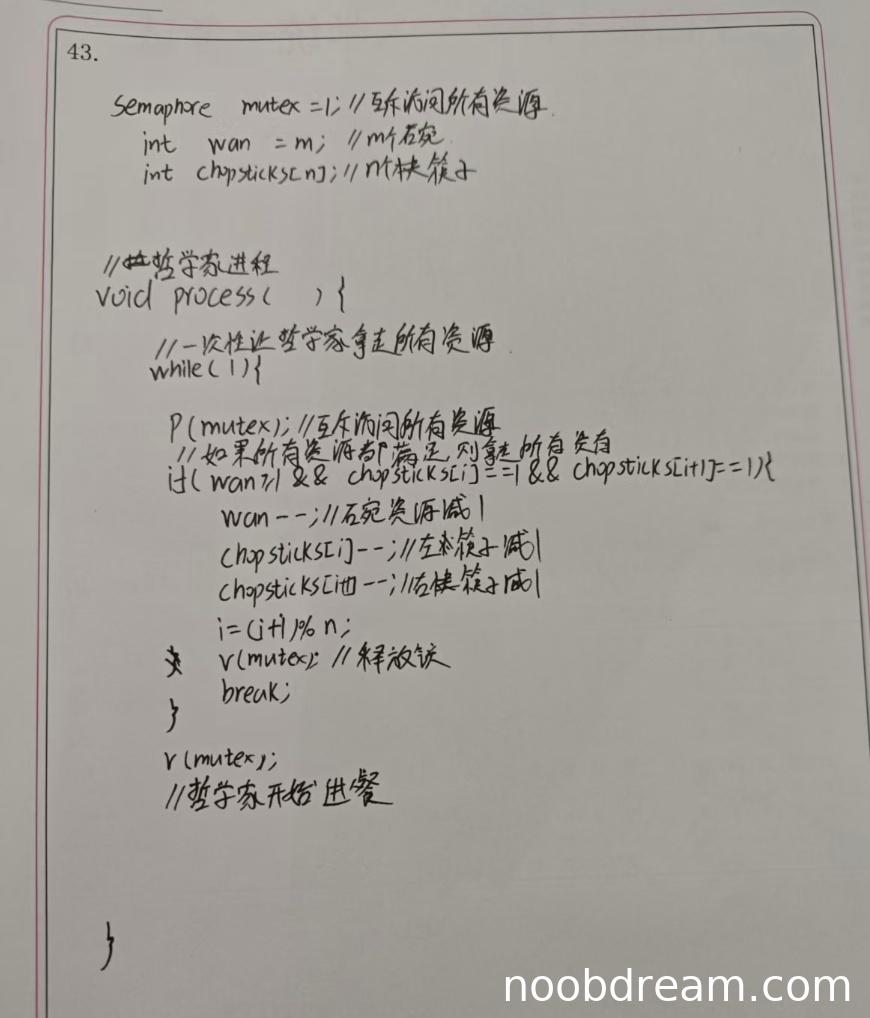 43.
Semaphore mutex =1; //互斥访问所有资源
int wan = m; //m个石宛
int chopsticks[n]; //n个快筷子
//哲学家进程
void process( ) {
//一次性让哲学家拿走所有资源
while(1){
P(mutex); //互斥访问所有资源
//如果所有资源都满足,则拿走所有资有
if( wan≥1 && chopsticks[i]==1 && chopsticks[i+1]==1){
wan--; //石宛资源减1
chopsticks[i]--; //左筷子减1
chopsticks[i+1]--; //右快筷子减1
i=(i+1)% n;
v(mutex); //释放锁
break;
}
v(mutex);
//哲学家开始进餐
}
noobdream.com